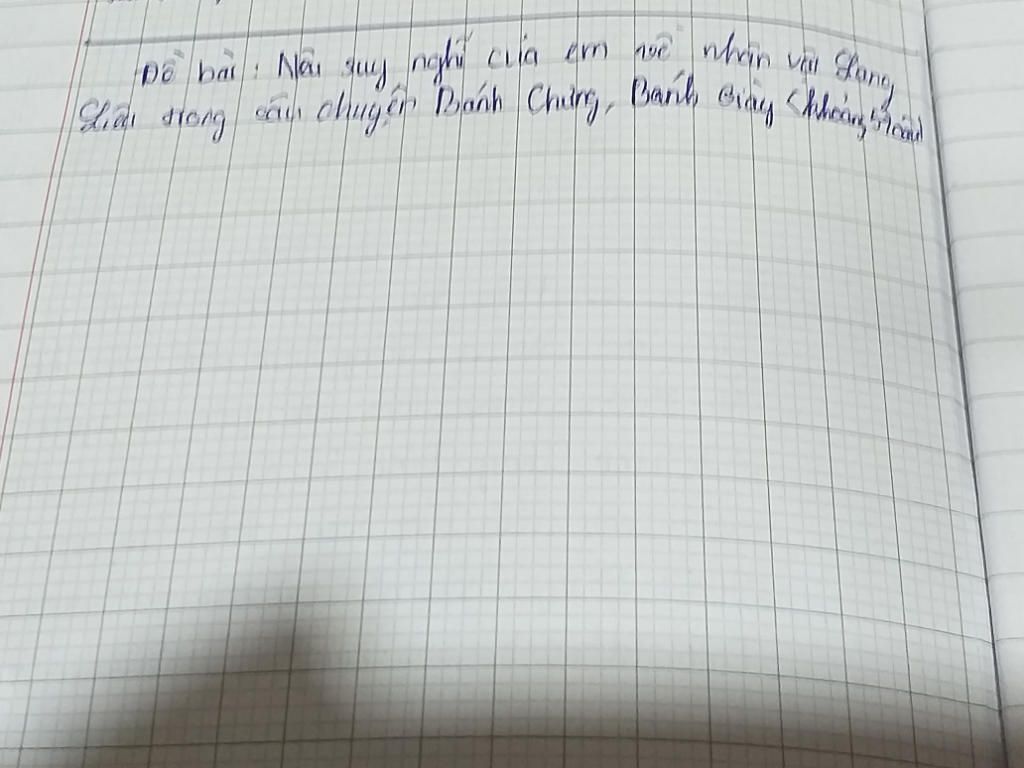 Đề bài: Nêu suy nghĩ của em về nhân vật Lang
Liêu trong câu chuyện Bánh Chưng, Bánh Giầy (khoảng 5-7 câu)